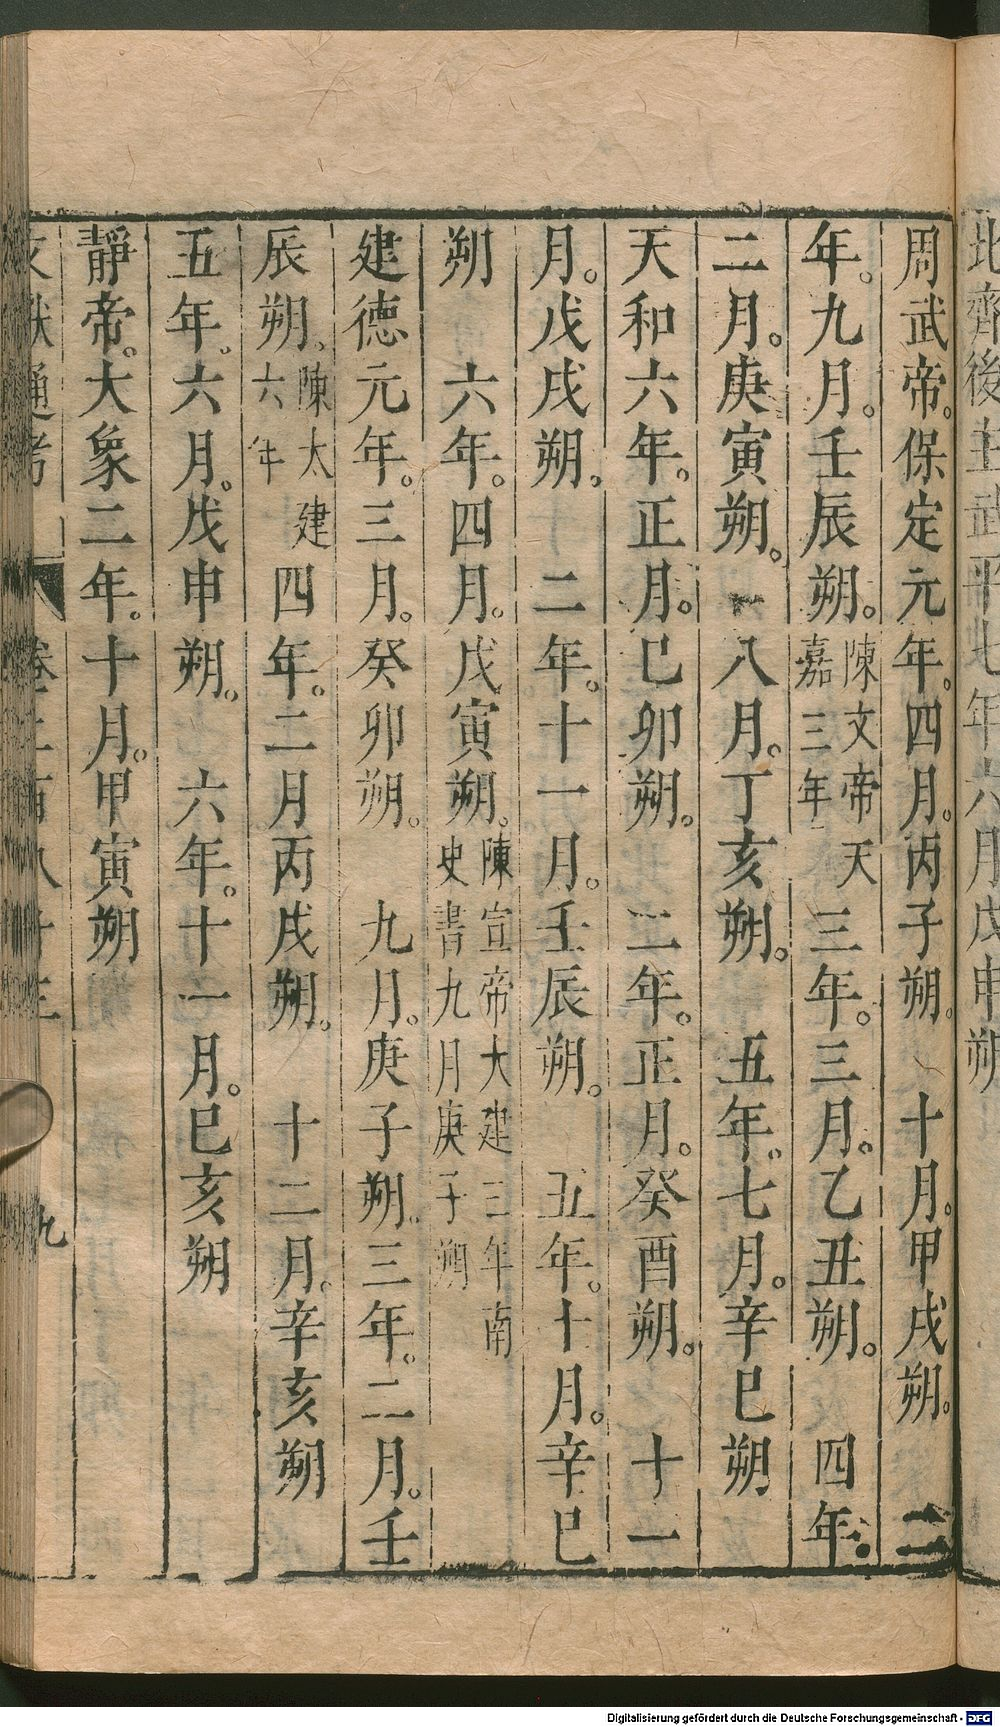 北齊後主武平七年六月戊申朔
周武帝。保定元年。四月。丙子朔。十月。甲戌朔。二
年。九月。壬辰朔。陳文帝天嘉三年三年。三月。乙丑朔。四年。
二月。庚寅朔。八月。丁亥朔。五年。七月。辛巳朔
天和六年。正月。巳卯朔。二年。正月。癸酉朔。十一
月。戊戌朔。二年。十一月。壬辰朔。五年。十月。辛巳
朔六年。四月。戊寅朔。陳宣帝大建三年南史書九月庚子朔
建德元年。三月。癸卯朔。九月。庚子朔。三年。二月。壬
辰朔。陳太建六年四年。二月丙戌朔。十二月。辛亥朔
五年。六月。戊申朔。六年。十一月。巳亥朔
靜帝。大象二年。十月。甲寅朔
文獻通考
卷二百八十三
九
Digitalisierung gefördert durch die Deutsche Forschungsgemeinschaft - DFG